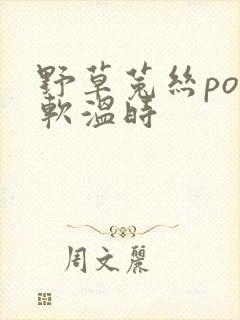 野草菟丝po
软温时
周文丽